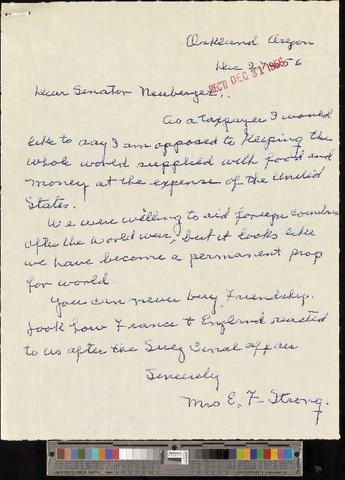 Oakland Oregon
Dec 27 1956
REC'D DEC 31 1956
Dear Senator Neuberger,
As a taxpayer I would
like to say I am opposed to keeping the
whole world supplied with food and
money at the expense of the United
States.
We were willing to aid foreign countries
after the World war, but it looks like
we have become a permanent prop
for world.
You can never buy Friendship.
Look how France + England reacted
to us after the Suez Canal affair
Sincerely
Mrs E. F. Strong.